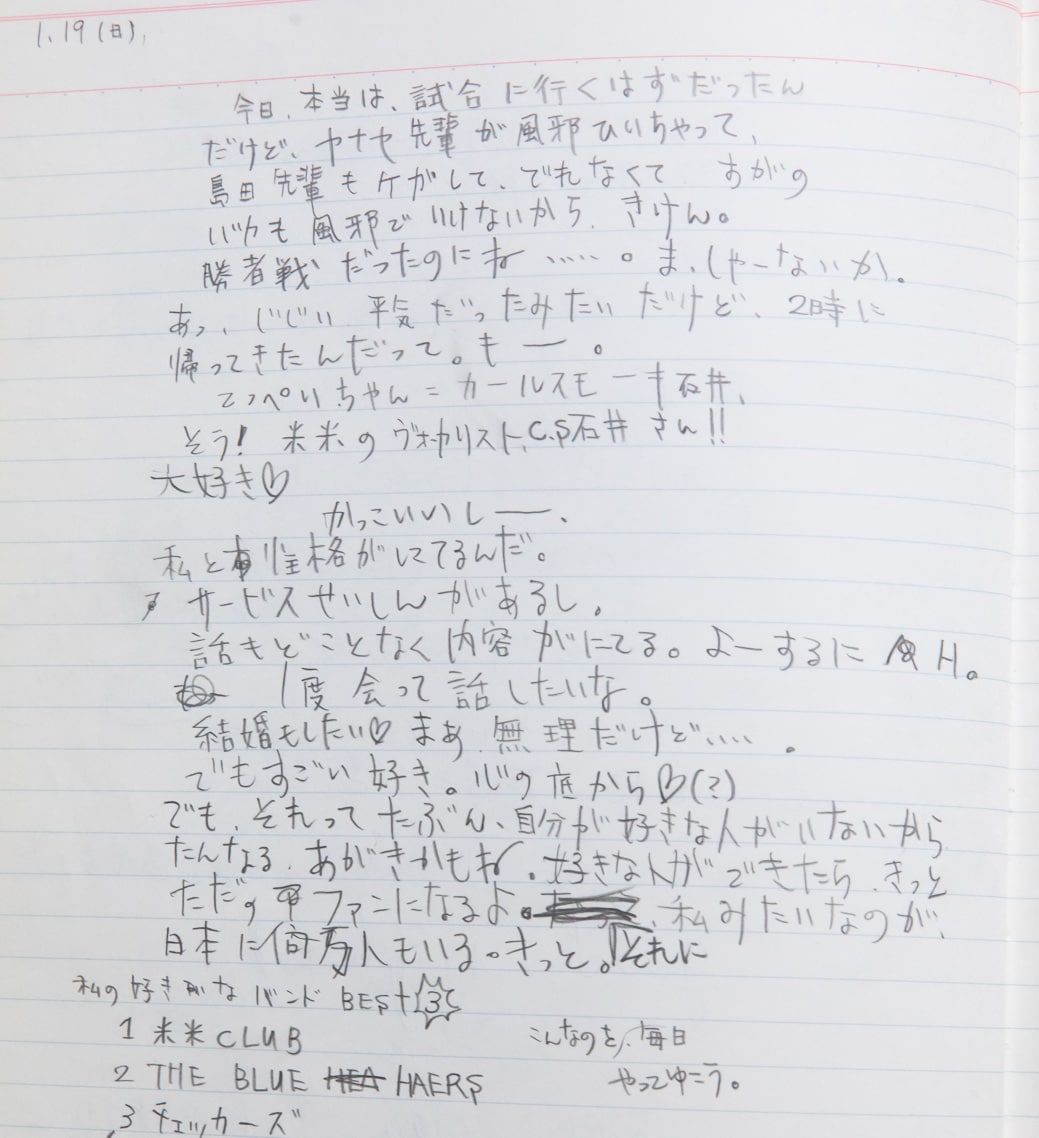 1.19(日).
今日、本当は、試合に行くはずだったん
だけど、ヤナセ先輩が風邪ひいちゃって、
島田先輩もケガして、でれなくて おがの
バカも風邪でいけないから、きけん。
勝者戦だったのにね……。ま、しゃーないか。
あっ、じじい平気だったみたいだけど、2時に
帰ってきたんだって。もー。
てっぺいちゃん=カールスモーキ石井、
そう! 米米のヴォーカリスト、C.S石井さん!!
大好き♡
かっこいいしー、
私と性格がにてるんだ。
サービスせいしんがあるし。
話もどことなく内容がにてる。よーするにH。
1度会って話したいな。
結婚もしたい♡ まあ、無理だけど……。
でもすごい好き。心の底から♡(?)
でも、それってたぶん、自分が好きな人がいないから
たんなる、あがきかもね。好きな人ができたら、きっと
ただのファンになるよ。、私みたいなのが、
日本に何万人もいる。きっと。それに
私の好きなバンド BEST 3
1 米米CLUB
こんなのを、毎日
2 THE BLUE HAERS
やってゆこう。
3 チェッカーズ